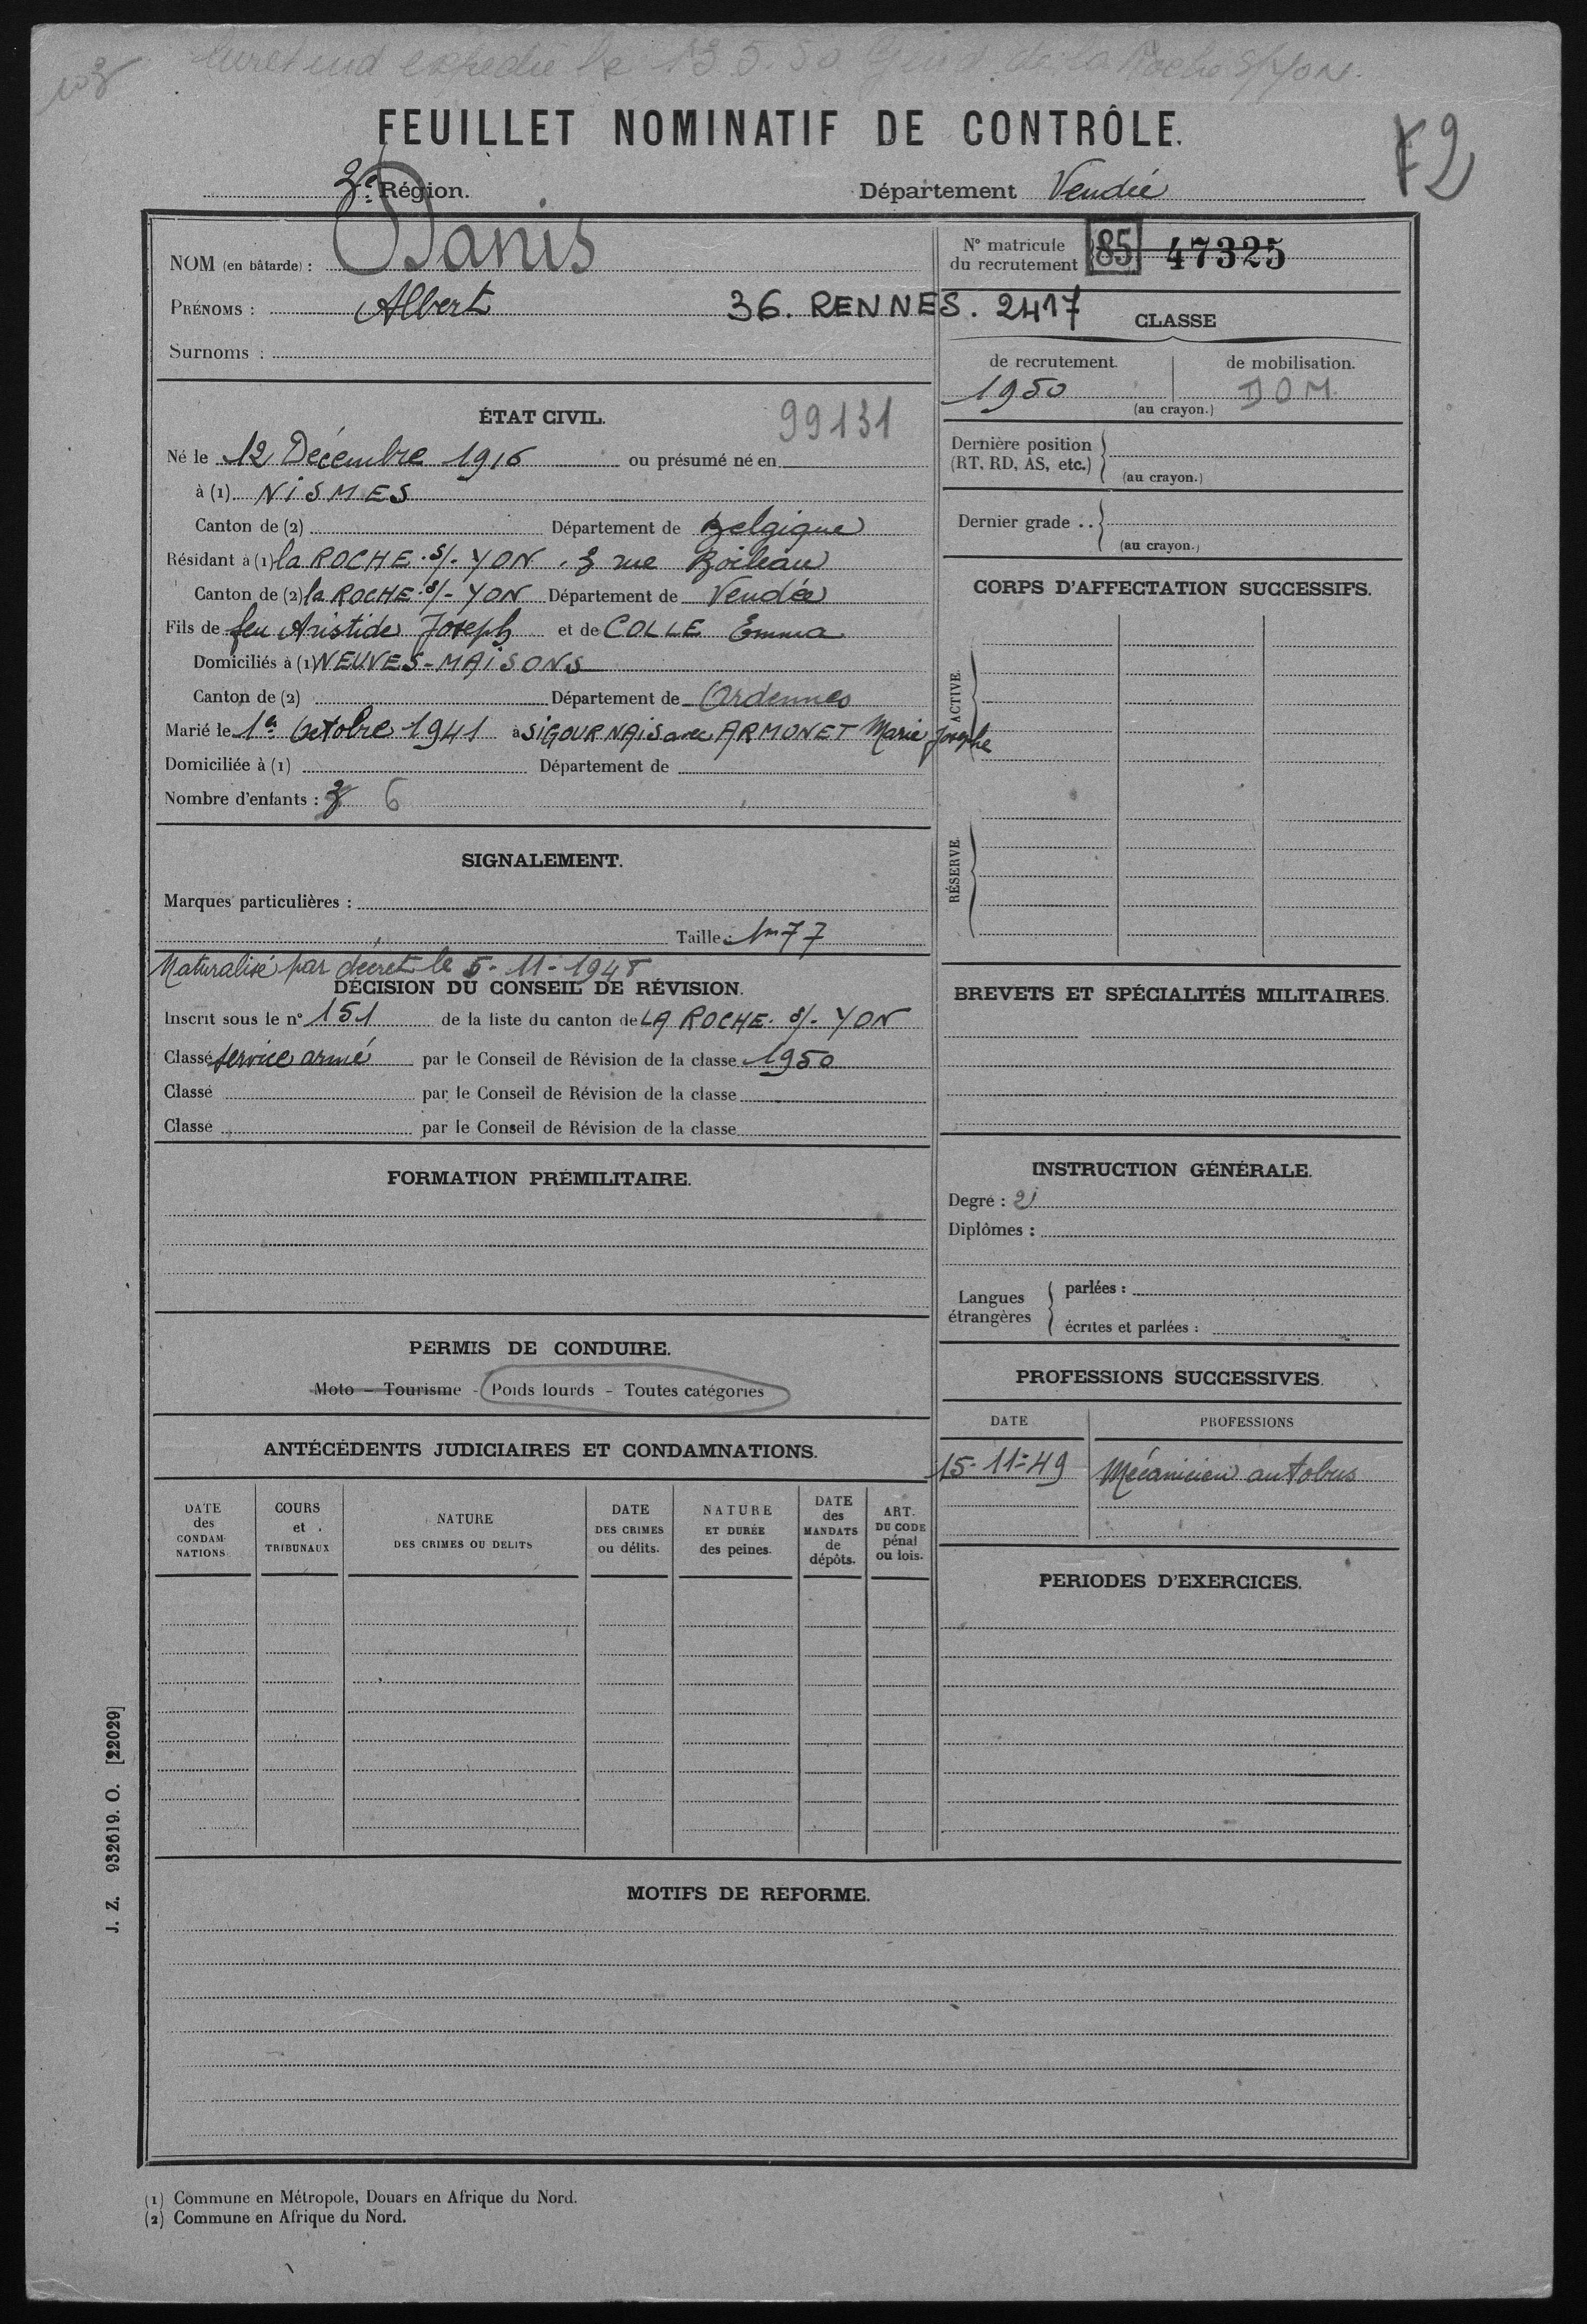 livret ind expédié le 13.5.50 Gend. de la Roche S/Yon.
FEUILLET NOMINATIF DE CONTRÔLE.
F2
3e Région. Département Vendée
NOM (en bâtarde) : Danis
N° matricule du recrutement 85 47325
PRÉNOMS : Albert 36. RENNES. 2417
Surnoms :
CLASSE
de recrutement. de mobilisation.
1950 DOM.
(au crayon.)
ÉTAT CIVIL. 99131
Né le 12 Décembre 1916 ou présumé né en
à (1) NISMES
Canton de (2) Département de Belgique
Résidant à (1) la ROCHE. S/- YON. 3 rue Boileau
Canton de (2) la ROCHE. S/- YON Département de Vendée
Fils de feu Aristide Joseph et de COLLE Emma
Domiciliés à (1) NEUVES-MAISONS
Canton de (2) Département de Ardennes
Marié le 1er Octobre 1941 à SIGOURNAIS avec ARMONET Marie Josephe
Domiciliée à (1) Département de
Nombre d'enfants : 3 6
SIGNALEMENT.
Marques particulières :
Taille : 1m77
Naturalisé par décret le 5-11-1948
DÉCISION DU CONSEIL DE RÉVISION.
Inscrit sous le n° 151 de la liste du canton de LA ROCHE. S/- YON
Classé service armé par le Conseil de Révision de la classe 1950
Classé par le Conseil de Révision de la classe
Classé par le Conseil de Révision de la classe
FORMATION PRÉMILITAIRE.
PERMIS DE CONDUIRE.
Moto – Tourisme - Poids lourds – Toutes catégories
ANTÉCÉDENTS JUDICIAIRES ET CONDAMNATIONS.
DATE des CONDAMNATIONS
COURS et TRIBUNAUX
NATURE DES CRIMES OU DÉLITS
DATE DES CRIMES ou délits.
NATURE ET DURÉE des peines.
DATE des MANDATS de dépôts.
ART. DU CODE pénal ou lois.
Dernière position (RT, RD, AS, etc.)
(au crayon.)
Dernier grade ..
(au crayon.)
CORPS D'AFFECTATION SUCCESSIFS.
ACTIVE.
RÉSERVE.
BREVETS ET SPÉCIALITÉS MILITAIRES.
INSTRUCTION GÉNÉRALE.
Degré : 2
Diplômes :
Langues étrangères
parlées :
écrites et parlées :
PROFESSIONS SUCCESSIVES.
DATE PROFESSIONS
15-11-49 Mécanicien autobus
PÉRIODES D'EXERCICES.
MOTIFS DE RÉFORME.
(1) Commune en Métropole, Douars en Afrique du Nord.
(2) Commune en Afrique du Nord.
J. Z. 932619. O. [22029]